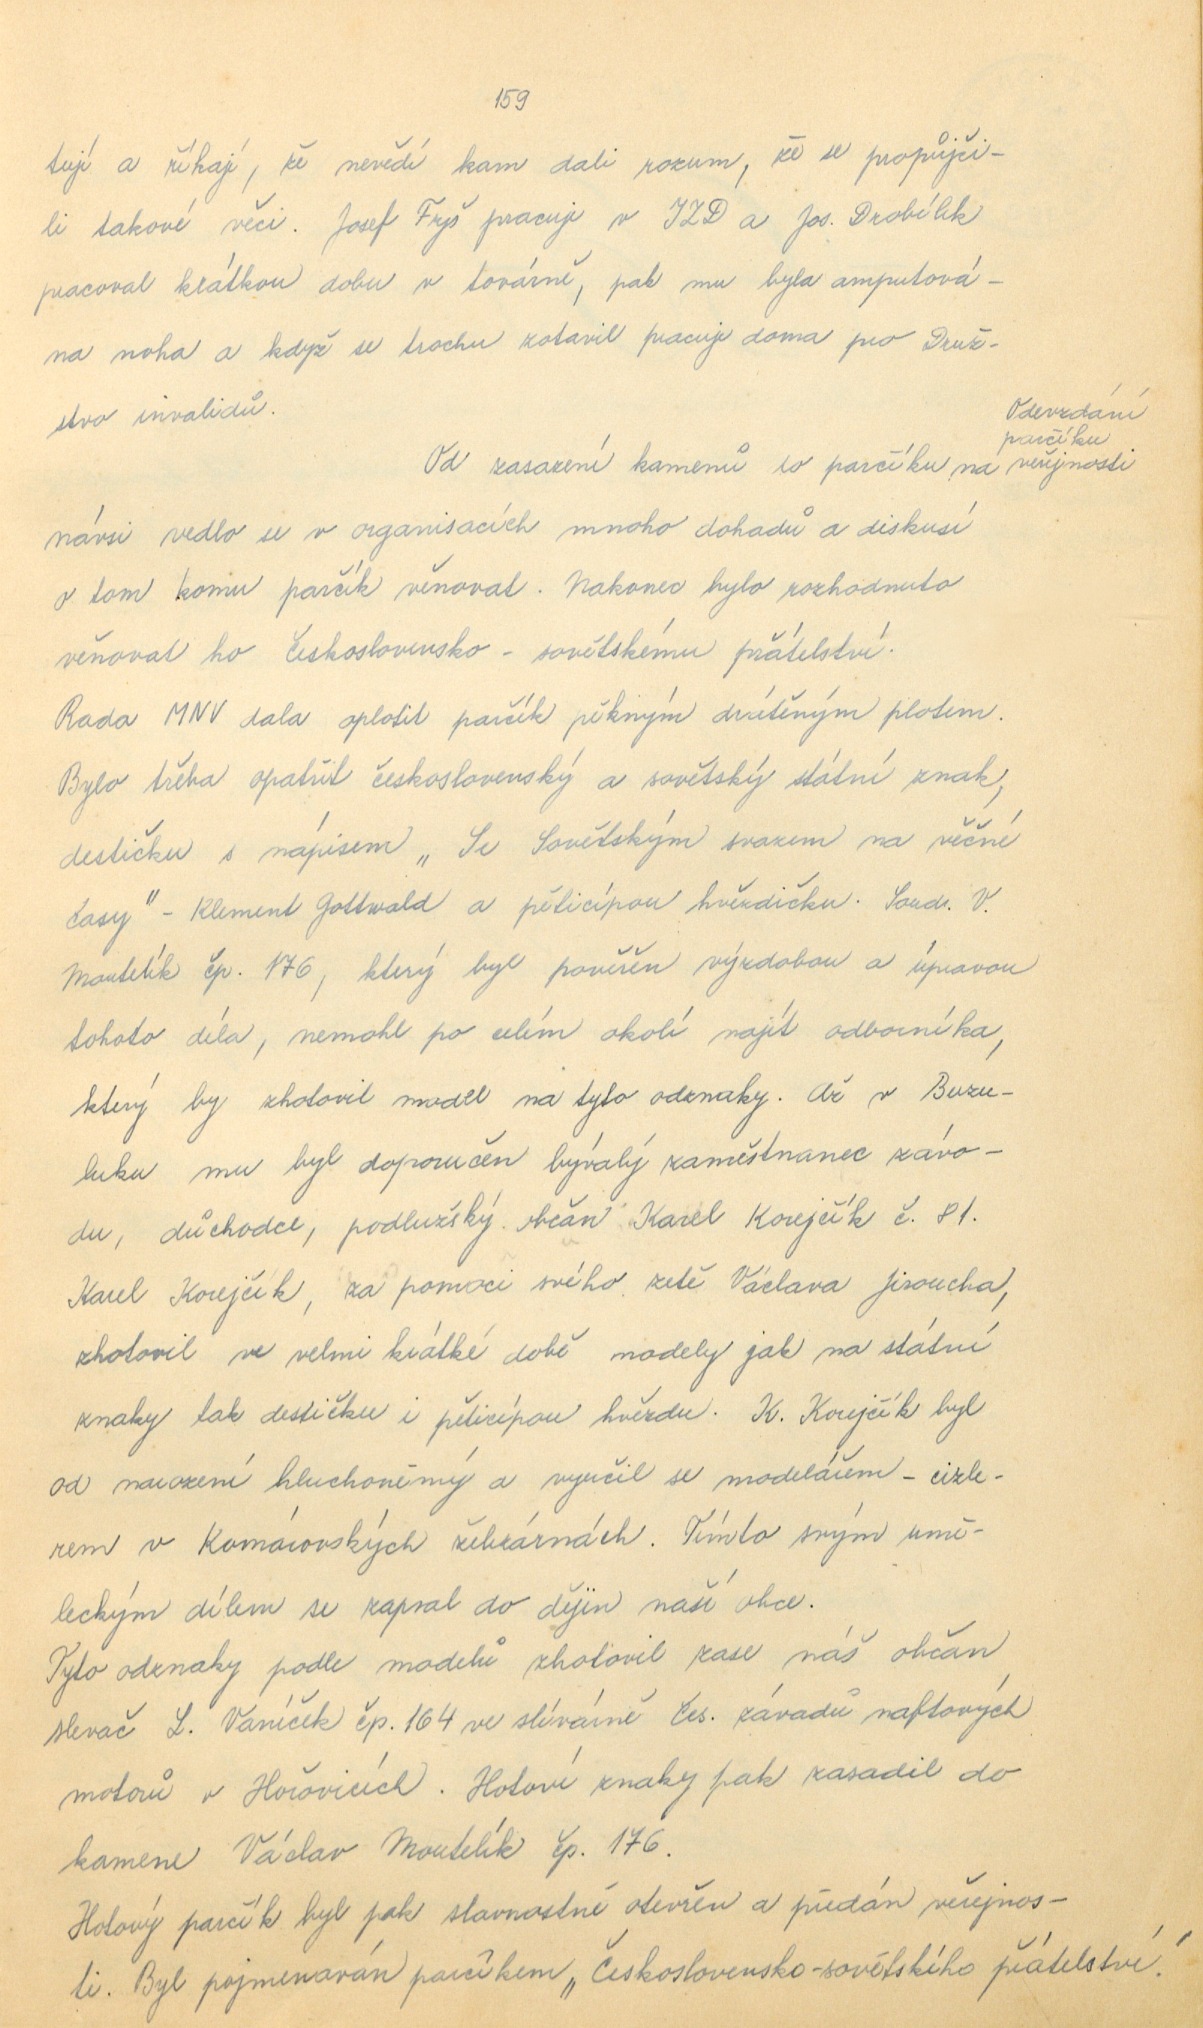 159
tují a říkají, že nevědí kam dali rozum, že se propůjči-
li takové věci. Josef Fryš pracuje v JZD a Jos. Drobílek
pracoval krátkou dobu v továrně, pak mu byla amputová-
na noha a když se trochu zotavil pracuje doma pro Druž-
stvo invalidů.
Odevzdání
parčíku
veřejnosti
Od zasazení kamenů do parčíku na
návsi vedlo se v organisacích mnoho dohadů a diskusí
o tom komu parčík věnovat. Nakonec bylo rozhodnuto
věnovat ho Československo - sovětskému přátelství.
Rada MNV dala oplotit parčík pěkným drátěným plotem.
Bylo třeba opatřit československý a sovětský státní znak,
destičku s nápisem „Se Sovětským svazem na věčné
časy" - Klement Gottwald a pěticípou hvězdičku. Soudr. V.
Moutelík čp. 176, který byl pověřen výzdobou a úpravou
tohoto díla, nemohl po celém okolí najít odborníka,
který by zhotovil model na tyto odznaky. Až v Buzu-
luku mu byl doporučen bývalý zaměstnanec závo-
du, důchodce, podlužský občan Karel Korejčík č. 81.
Karel Korejčík, za pomoci svého zetě Václava Jiroucha,
zhotovil ve velmi krátké době modely jak na státní
znaky tak destičku i pěticípou hvězdu. K. Korejčík byl
od narození hluchoněmý a vyučil se modelářem - cizle-
rem v Komárovských železárnách. Tímto svým umě-
leckým dílem se zapsal do dějin naší obce.
Tyto odznaky podle modelů zhotovil zase náš občan
slevač L. Vaníček čp. 164 ve slévárně Čes. závadů naftových
motorů v Hořovicích. Hotové znaky pak zasadil do
kamene Václav Moutelík čp. 176.
Hotový parčík byl pak slavnostně otevřen a předán veřejnos-
ti. Byl pojmenován parčíkem „Československo-sovětského přátelství."